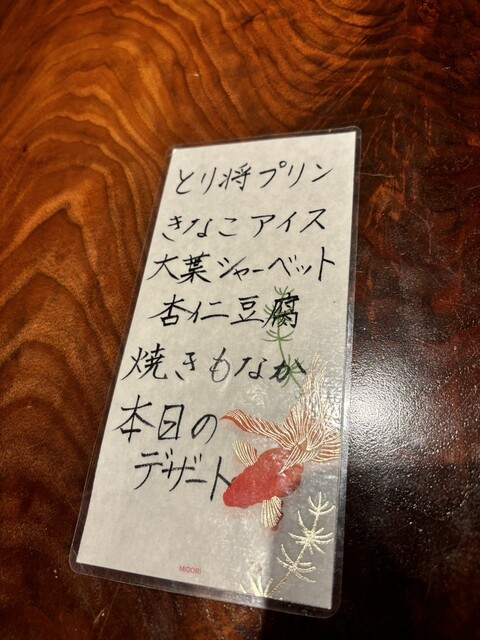 とり将プリン
きなこアイス
大葉シャーベット
杏仁豆腐
焼きもなか
本日の
デザート
MIDORI